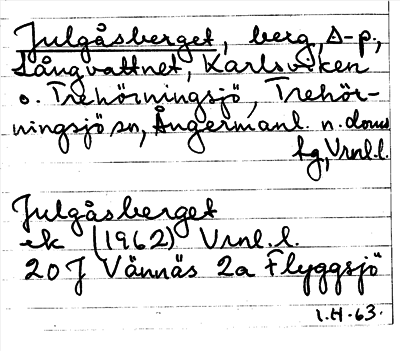 Julgåsberget, berg, Δ-p.,
Långvattnet, Karlsviken
o. Trehörningsjö, Trehör-
ningsjö sn, Ångermanl. n. doms
hg, Vrnl. l.
Julgåsberget
ek (1962) Vrnl. l.
20 J Vännäs 2a Flyggsjö
1.H.63.